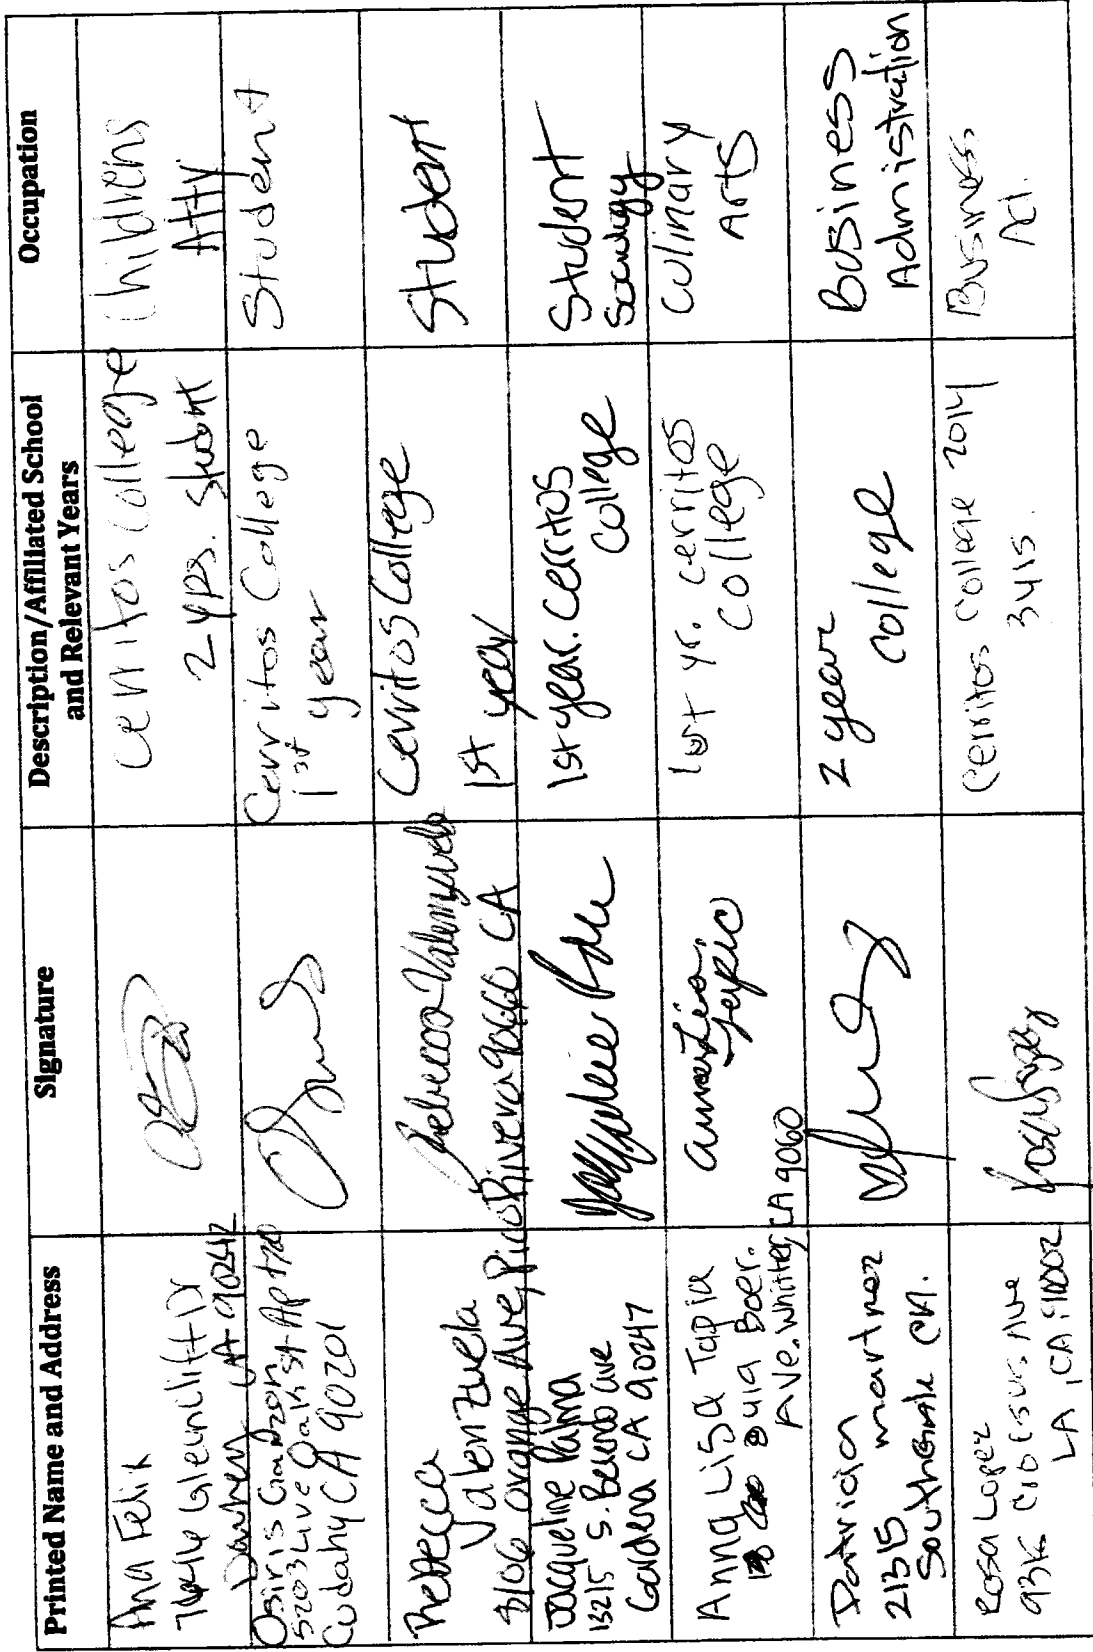 Printed Name and Address
Signature
Description/Affiliated School
and Relevant Years
Occupation
Ana Felix
7644 Glenclift Dr
Downey CA 90242
Cerritos College
2 yrs. student
Childrens
Atty
Osiris
5203 Live Oak St Apt
Cudahy CA 90201
Cerritos College
1st year
Student
Rebecca
Valenzuela
8106 Orange Ave, Pico Rivera 90660 CA
Rebecca Valenzuela
Cerritos College
1st year
Student
Jacqueline Palma
15215 S. Berendo ave
Gardena CA 90247
1st year. Cerritos
College
Student
Sociology
Anna Lisa Tapia
Boer.
Ave. Whittier, CA 9060
1st yr. cerritos
college
Culinary
Arts
Patricia
martinez
21315
CA.
2 year
college
Business
Administration
Rosa Lopez
Ave
LA, CA
Cerritos College 2014
3415.
Business
Ad.